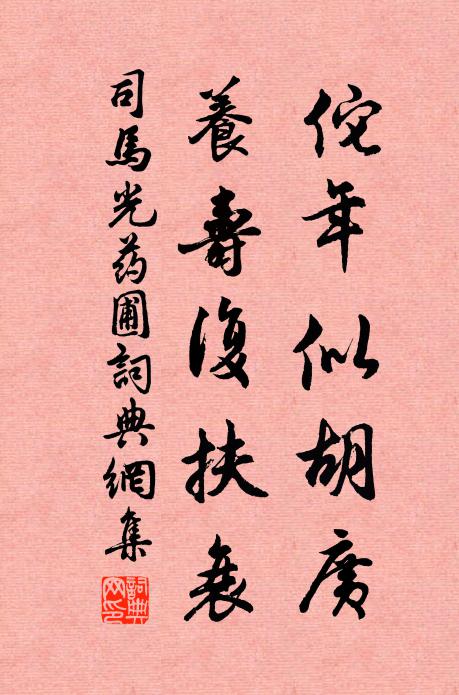 佗年似胡廣
養壽復扶衰
司馬光药圃詞典網集
詞典
网印